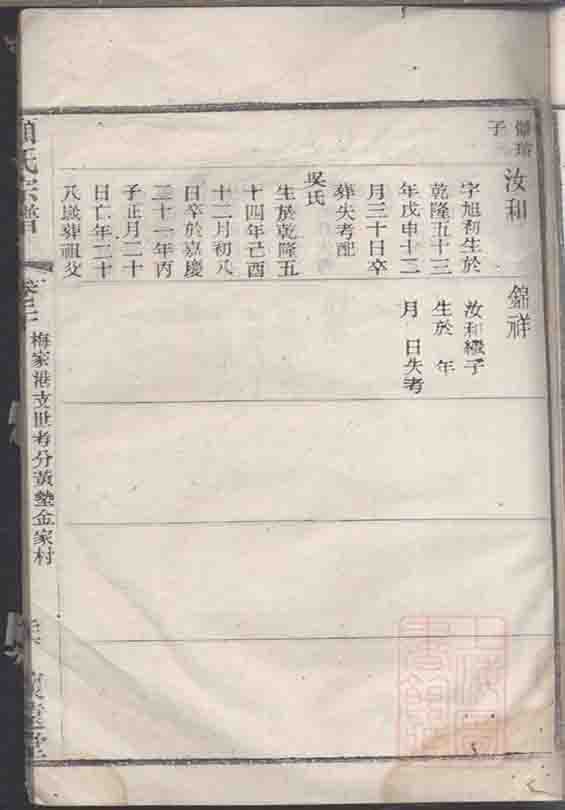 子
汝和
字旭初生於
乾隆五十三
年戊申十二
月三十日卒
葬失考配
吳氏
生於乾隆五
十四年己酉
十二月初八
日卒於嘉慶
二十一年丙
子正月二十
日亡年二十
八歲葬祖父
錦祥
汝和繼子
生於 年
月 日失考
氏宗譜
梅家港支世考分黃墊金家村